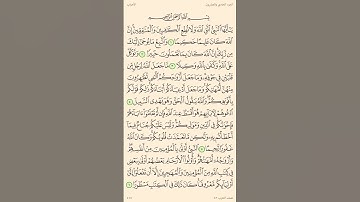 بِسْمِ ٱللَّهِ ٱلرَّحْمَٰنِ ٱلرَّحِيمِ
يَٰٓأَيُّهَا ٱلنَّبِيُّ ٱتَّقِ ٱللَّهَ وَلَا تُطِعِ ٱلْكَٰفِرِينَ وَٱلْمُنَٰفِقِينَ إِنَّ
ٱللَّهَ كَانَ عَلِيمًا حَكِيمًا ١ وَٱتَّبِعْ مَا يُوحَىٰٓ إِلَيْكَ
مِن رَّبِّكَ إِنَّ ٱللَّهَ كَانَ بِمَا تَعْمَلُونَ خَبِيرًا ٢ وَتَوَكَّلْ
عَلَى ٱللَّهِ وَكَفَىٰ بِٱللَّهِ وَكِيلًا ٣ مَّا جَعَلَ ٱللَّهُ لِرَجُلٍ
مِّن قَلْبَيْنِ فِي جَوْفِهِۦ وَمَا جَعَلَ أَزْوَٰجَكُمُ ٱلَّٰٓـِٔي تُظَٰهِرُونَ
مِنْهُنَّ أُمَّهَٰتِكُمْ وَمَا جَعَلَ أَدْعِيَآءَكُمْ أَبْنَآءَكُمْ ذَٰلِكُمْ قَوْلُكُم
بِأَفْوَٰهِكُمْ وَٱللَّهُ يَقُولُ ٱلْحَقَّ وَهُوَ يَهْدِي ٱلسَّبِيلَ ٤
ٱدْعُوهُمْ لِأٓبَآئِهِمْ هُوَ أَقْسَطُ عِندَ ٱللَّهِ فَإِن لَّمْ تَعْلَمُوٓا۟ ءَابَآءَهُمْ
فَإِخْوَٰنُكُمْ فِي ٱلدِّينِ وَمَوَٰلِيكُمْ وَلَيْسَ عَلَيْكُمْ جُنَاحٌ فِيمَآ
أَخْطَأْتُم بِهِۦ وَلَٰكِن مَّا تَعَمَّدَتْ قُلُوبُكُمْ وَكَانَ ٱللَّهُ
غَفُورًا رَّحِيمًا ٥ ٱلنَّبِيُّ أَوْلَىٰ بِٱلْمُؤْمِنِينَ مِنْ أَنفُسِهِمْ
وَأَزْوَٰجُهُۥٓ أُمَّهَٰتُهُمْ وَأُو۟لُوا۟ ٱلْأَرْحَامِ بَعْضُهُمْ أَوْلَىٰ بِبَعْضٍ
فِي كِتَٰبِ ٱللَّهِ مِنَ ٱلْمُؤْمِنِينَ وَٱلْمُهَٰجِرِينَ إِلَّآ أَن تَفْعَلُوٓا۟ إِلَىٰٓ
أَوْلِيَآئِكُم مَّعْرُوفًا كَانَ ذَٰلِكَ فِي ٱلْكِتَٰبِ مَسْطُورًا ٦